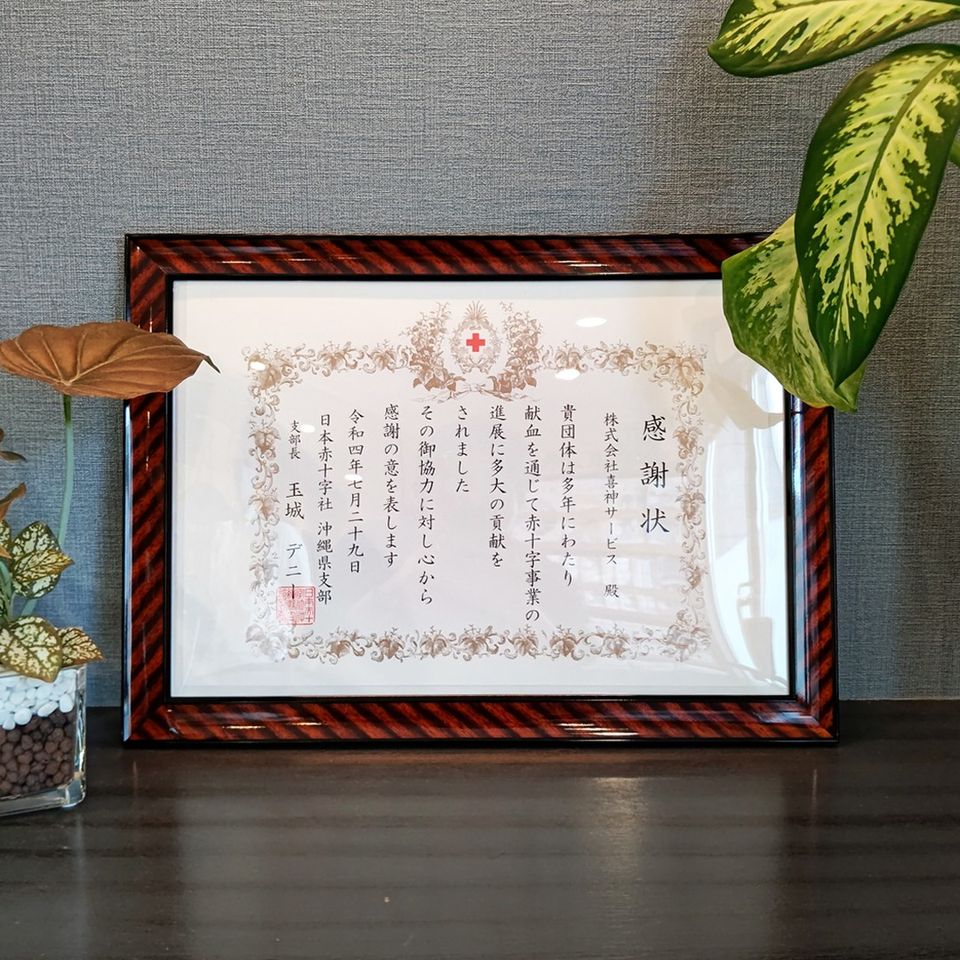 感謝状
株式会社喜神サービス 殿
貴団体は多年にわたり
献血を通じて赤十字事業の
進展に多大の貢献を
されました
その御協力に対し心から
感謝の意を表します
令和四年七月二十九日
日本赤十字社 沖縄県支部
支部長 玉城 デニー